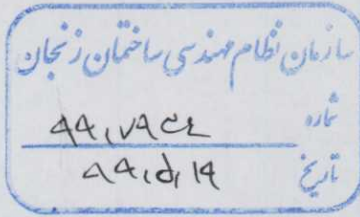 سازمان نظام مهندسی ساختمان زنجان
شماره
تاریخ ۹۹,۵,۱۹